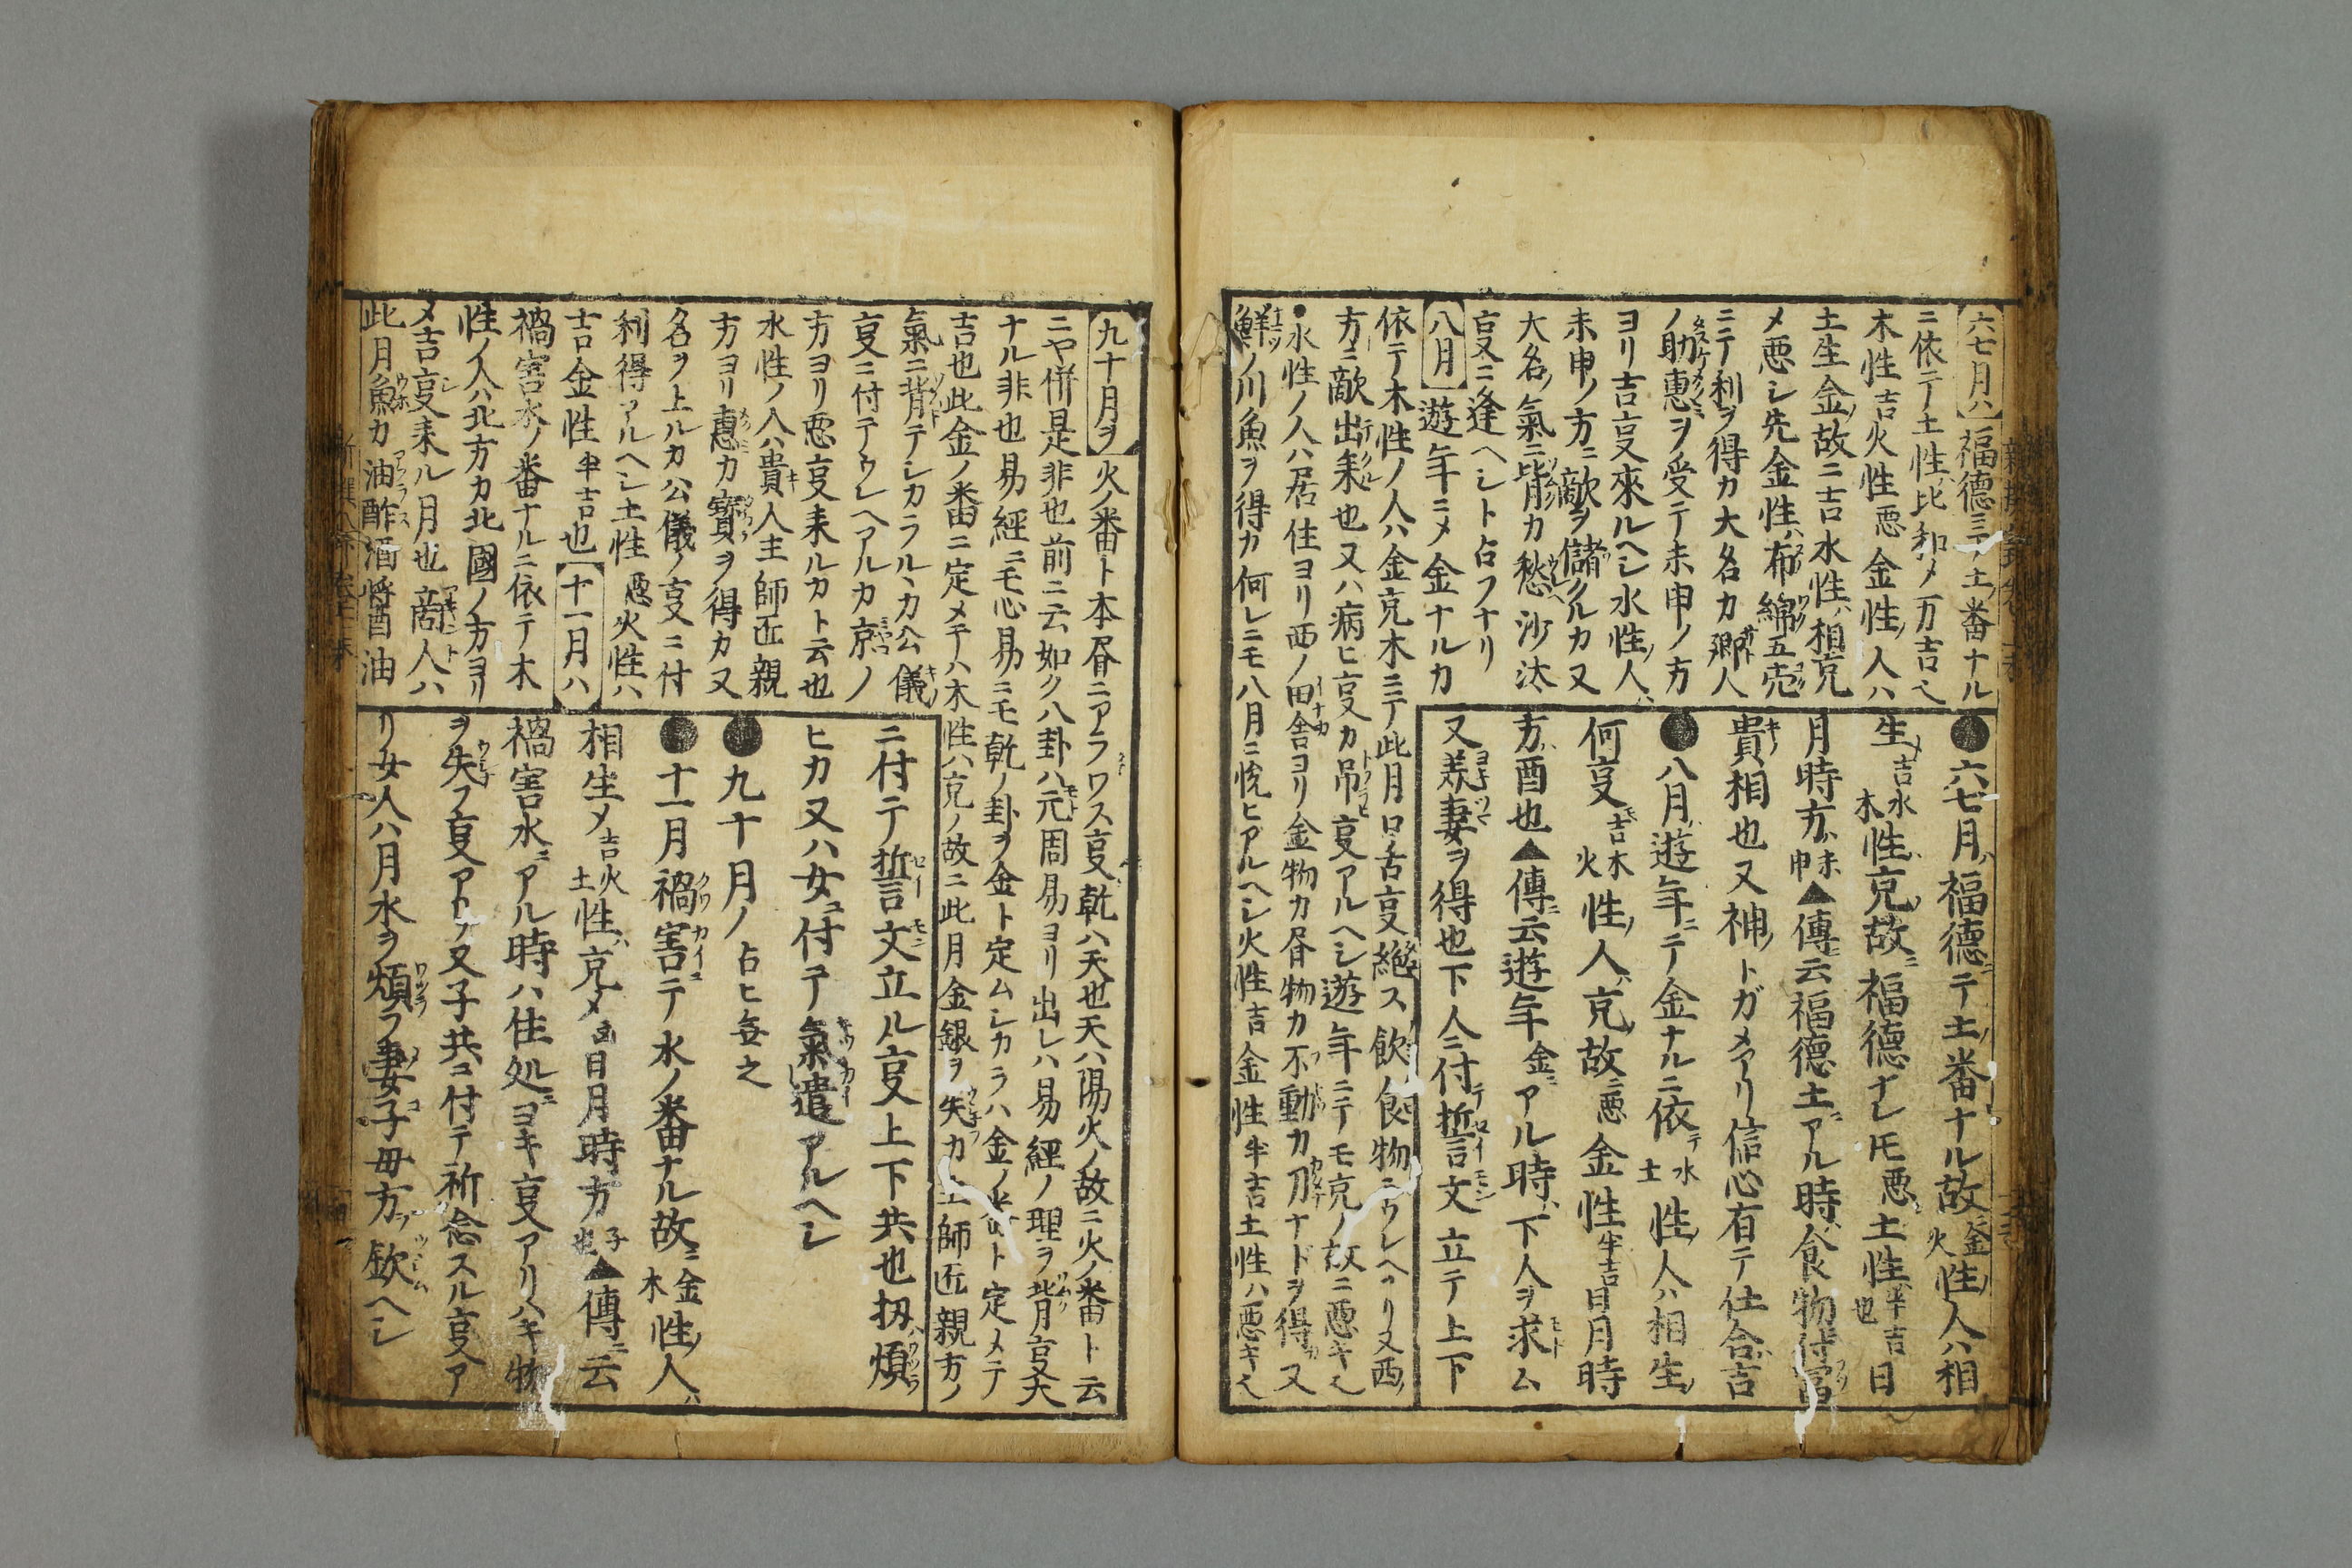 六七月ハ福德ニテ土ノ番ナル
ニ依テ土性ハ比和メ万吉也
木性吉火性悪金性ノ人ハ
土生金ノ故ニ吉水性ハ相克
メ悪シ先金性ハ布綿五売
ニテ利ヲ得カ大名カ郷人
ノ助惠ヲ受テ未申ノ方
ヨリ吉㕝來ルヘシ水性ノ人ハ
未申ノ方ニ敵ヲ儲クルカ又
大名ノ氣ニ背カ愁沙汰
㕝ニ逢ヘシト占フナリ
八月遊年ニメ金ナルカ
依テ木性ノ人ハ金克木ニテ此月口舌㕝絶ス飲食物ニウレヘアリ又酉ノ
方ニ敵出来也又ハ病ヒ㕝カ吊㕝アルヘシ遊年ニテモ克ノ故ニ悪キ也
●水性ノ人ハ居住ヨリ西ノ田舎ヨリ金物カ屑物カ不動カ刀ナドヲ得又
鮮ノ川魚ヲ得カ何レニモ八月ニ悦ヒアルヘシ火性吉金性半吉土性ハ悪キ也
●六七月ハ福德ニテ土ノ番ナル故金火性ノ人ハ相
生メ吉水木性ハ克ノ故ニ福德ナレ𪜈悪土性ハ半吉也日
月時方ハ未申▲傳ニ云福德土ニアル時ハ食物
貴相也又神ノトガメアリ信心有テ仕合吉
●八月ハ遊年ニテ金ナルニ依テ水土性ノ人ハ相生ノ
何㕝モ吉木火性ノ人ハ克ノ故ニ悪金性半吉日月時
方ハ酉也▲傳ニ云遊年金ニアル時ハ下人ヲ求ム
又美妻ヲ得也下人ニ付テ誓文立テ上下
九十月ヲ火ノ番ト本眉ニアラワス㕝乾ハ天也天ハ陽火ノ故ニ火ノ番ト云
ニや併是非也前ニ云如ク八卦ハ元周易ヨリ出レハ易經ノ理ヲ背㕝大
ナル非也易經ニモ心易ニモ乾ノ卦ヲ金ト定ムシカラハ金ノ番ト定メテ
吉也此金ノ番ニ定メテハ木性ハ克ノ故ニ此月金銀ヲ失カ主師匠親方ノ
氣ニ背テシカラルヽカ公儀
㕝ニ付テウレヘアルカ京ノ
方ヨリ悪㕝来ルカト云也
水性ノ人ハ貴人主師匠親
方ヨリ惠カ寳ヲ得カ又
名ヲ上ルカ公儀ノ㕝ニ付
利得アルヘシ土性悪火性ハ
吉金性半吉也十一月ハ
禍害水ノ番ナルニ依テ木
性ノ人ハ北方カ北國ノ方ヨリ
メ吉㕝来ル月也商人ハ
此月魚カ油酢酒醬油
ニ付テ誓文立ル㕝上下共也扨煩
ヒカ又ハ女ニ付テ氣遣アルヘシ
●九十月ノ占ヒ無之
●十一月禍害ニテ水ノ番ナル故ニ金木性ノ人ハ
相生メ吉火土性ハ克メ凶日月時方ハ子也▲傳ニ云
禍害水ニアル時ハ住処ニヨキ㕝アリハキ物
ヲ失フ㕝アトハ又子共ニ付テ祈念スル㕝ア
リ女人ハ月水ヲ煩ラフ妻子母方ノ欽ヘシ